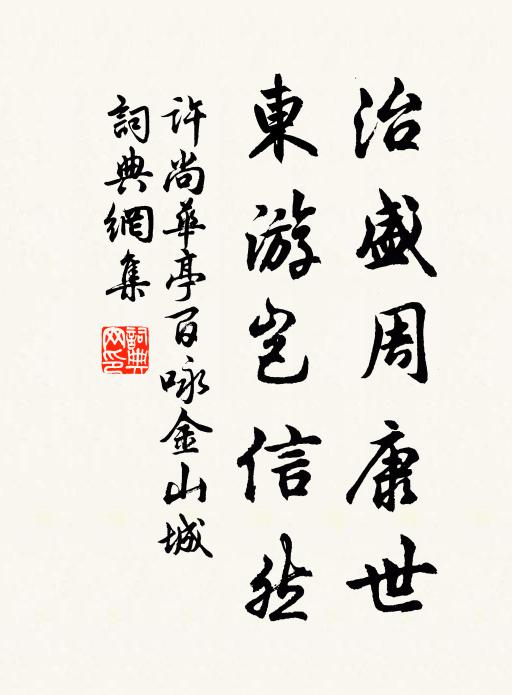 治盛周康世
東游豈信然
許尚華亭百咏金山城
詞典網集
詞典網印